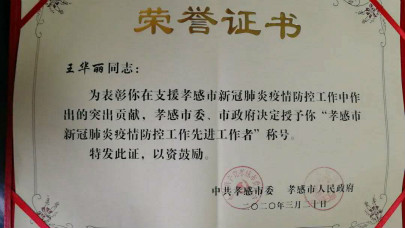 荣誉证书
王华丽同志:
为表彰你在支援孝感市新冠肺炎疫情防控工作中作
出的突出贡献,孝感市委、市政府决定授予你“孝感市
新冠肺炎疫情防控工作先进工作者”称号。
特发此证,以资鼓励。
中共孝感市委 孝感市人民政府
二〇二〇年三月二十日